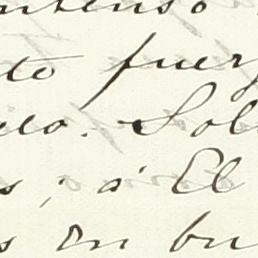 ntenso
to fuerz
eo. Sol
s; o' El
s En bu